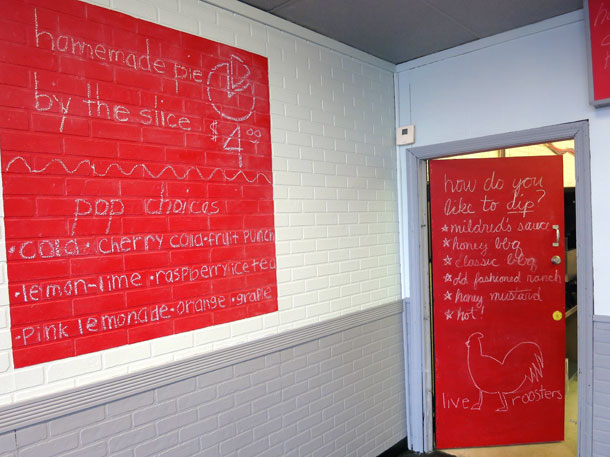 homemade pie
by the slice
$4.00
pop choices
•cola•cherry cola•fruit punch
•lemon-lime•raspberry ice tea
•pink lemonade•orange•grape
how do you
like to dip?
*mildred's sauce
*honey bbq
*classic bbq
*old fashioned ranch
*honey mustard
*hot!
live roosters